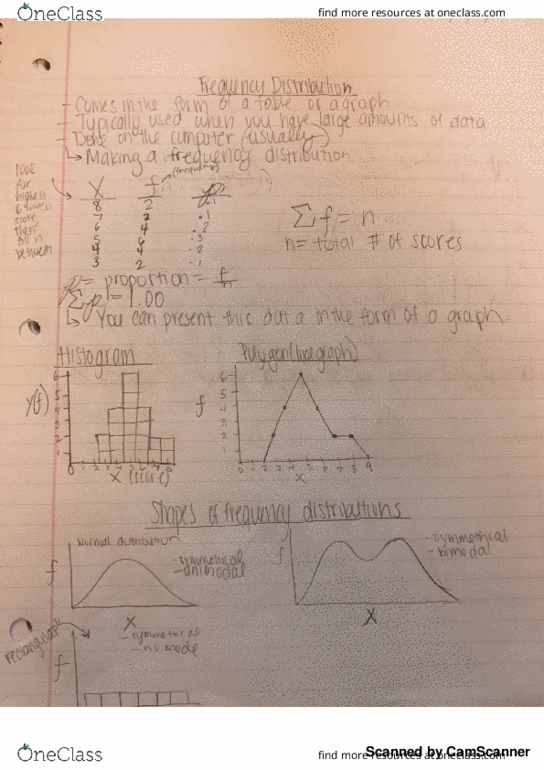 OneClass
find more resources at oneclass.com
Frequency Distribution
- Comes in the form of a table or a graph
- Typically used when you have large amounts of data
- Done on the computer (usually)
↳ Making a frequency distribution
look for highest & lowest score then fill in between
(frequency)
X f p
8 2 .1
7 2 .1
6 4 .2
5 6 .3
4 4 .2
3 2 .1
Σf = n
n = total # of scores
p = proportion = f/n
Σp = 1.00
↳ You can present this data in the form of a graph
Histogram
Polygon (line graph)
y(f)
6
5
4
3
2
1
0 1 2 3 4 5 6 7 8
X (score)
f
6
5
4
3
2
1
0 1 2 3 4 5 6 7 8 9
X
Shapes of frequency distributions
Normal distribution
- symmetrical
- unimodal
f
X
- symmetrical
- bimodal
f
X
rectangular
- symmetrical
- no mode
f
Scanned by CamScanner
OneClass
find more resources at oneclass.com